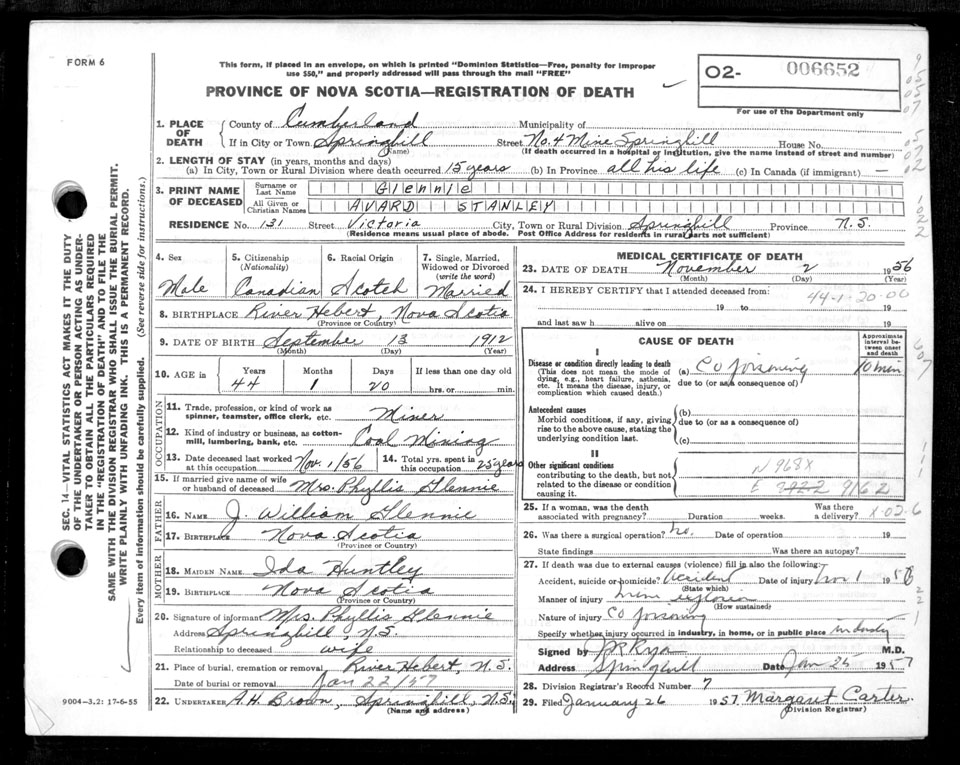 FORM 6
This form, if placed in an envelope, on which is printed "Dominion Statistics—Free, penalty for improper
use $50," and properly addressed will pass through the mail "FREE"
O2- 006652
For use of the Department only
PROVINCE OF NOVA SCOTIA—REGISTRATION OF DEATH
1. PLACE OF DEATH
County of Cumberland Municipality of
If in City or Town Springhill Street No. 4 Mine Springhill House No.
(Name) (If death occurred in a hospital or institution, give the name instead of street and number)
2. LENGTH OF STAY (in years, months and days)
(a) In City, Town or Rural Division where death occurred 15 years (b) In Province all his life (c) In Canada (if immigrant) —
3. PRINT NAME OF DECEASED
Surname or Last Name Glennie
All Given or Christian Names AVARD STANLEY
RESIDENCE No. 131 Street Victoria City, Town or Rural Division Springhill Province N.S.
(Residence means usual place of abode. Post Office Address for residents in rural parts not sufficient)
4. Sex Male
5. Citizenship (Nationality) Canadian
6. Racial Origin Scotch
7. Single, Married, Widowed or Divorced (write the word) Married
8. BIRTHPLACE River Hebert, Nova Scotia
(Province or Country)
9. DATE OF BIRTH September 13 1912
(Month) (Day) (Year)
10. AGE in Years 44 Months 1 Days 20 If less than one day old
hrs. or min.
OCCUPATION
11. Trade, profession or kind of work as spinner, teamster, office clerk, etc. Miner
12. Kind of industry or business, as cotton-mill, lumbering, bank, etc. Coal Mining
13. Date deceased last worked at this occupation Nov. 1/56
14. Total yrs. spent in this occupation 25 years
15. If married give name of wife or husband of deceased Mrs. Phyllis Glennie
FATHER
16. NAME J. William Glennie
17. BIRTHPLACE Nova Scotia
(Province or Country)
MOTHER
18. MAIDEN NAME Ida Huntley
19. BIRTHPLACE Nova Scotia
(Province or Country)
20. Signature of informant Mrs. Phyllis Glennie
Address Springhill, N.S.
Relationship to deceased wife
21. Place of burial, cremation or removal River Hebert, N.S.
Date of burial or removal Jan 22/57
22. UNDERTAKER A.H. Brown, Springhill, N.S.
(Name and address)
MEDICAL CERTIFICATE OF DEATH
23. DATE OF DEATH November 2 1956
(Month) (Day) (Year)
24. I HEREBY CERTIFY that I attended deceased from:
44-1-20-00
19 to 19
and last saw h alive on 19
CAUSE OF DEATH
Approximate interval between onset and death
I
Disease or condition directly leading to death
(This does not mean the mode of dying, e.g., heart failure, asthenia, etc. It means the disease, injury, or complication which caused death.)
(a) CO poisoning 10 min
due to (or as a consequence of)
Antecedent causes
Morbid conditions, if any, giving rise to the above cause, stating the underlying condition last.
(b)
due to (or as a consequence of)
(c)
II
Other significant conditions
contributing to the death, but not related to the disease or condition causing it.
N968X
E 9162
25. If a woman, was the death associated with pregnancy? Duration weeks. Was there a delivery? X-02-6
26. Was there a surgical operation? no. Date of operation 19
State findings Was there an autopsy?
27. If death was due to external causes (violence) fill in also the following:
Accident, suicide or homicide? Accident Date of injury Nov 1 1956
(State which)
Manner of injury mine explosion
(How sustained)
Nature of injury CO poisoning
Specify whether injury occurred in industry, in home, or in public place industry
Signed by JR Ryan M.D.
Address Springhill Date Jan 25 1957
28. Division Registrar's Record Number 7
29. Filed January 26 1957. Margaret Carter
(Division Registrar)
9004-3.2: 17-6-55
SEC. 14—VITAL STATISTICS ACT MAKES IT THE DUTY
OF THE UNDERTAKER OR PERSON ACTING AS UNDER-
TAKER TO OBTAIN ALL THE PARTICULARS REQUIRED
IN THE "REGISTRATION OF DEATH" AND TO FILE THE
SAME WITH THE DIVISION REGISTRAR WHO SHALL ISSUE THE BURIAL PERMIT.
WRITE PLAINLY WITH UNFADING INK. THIS IS A PERMANENT RECORD.
Every item of information should be carefully supplied. (See reverse side for instructions.)